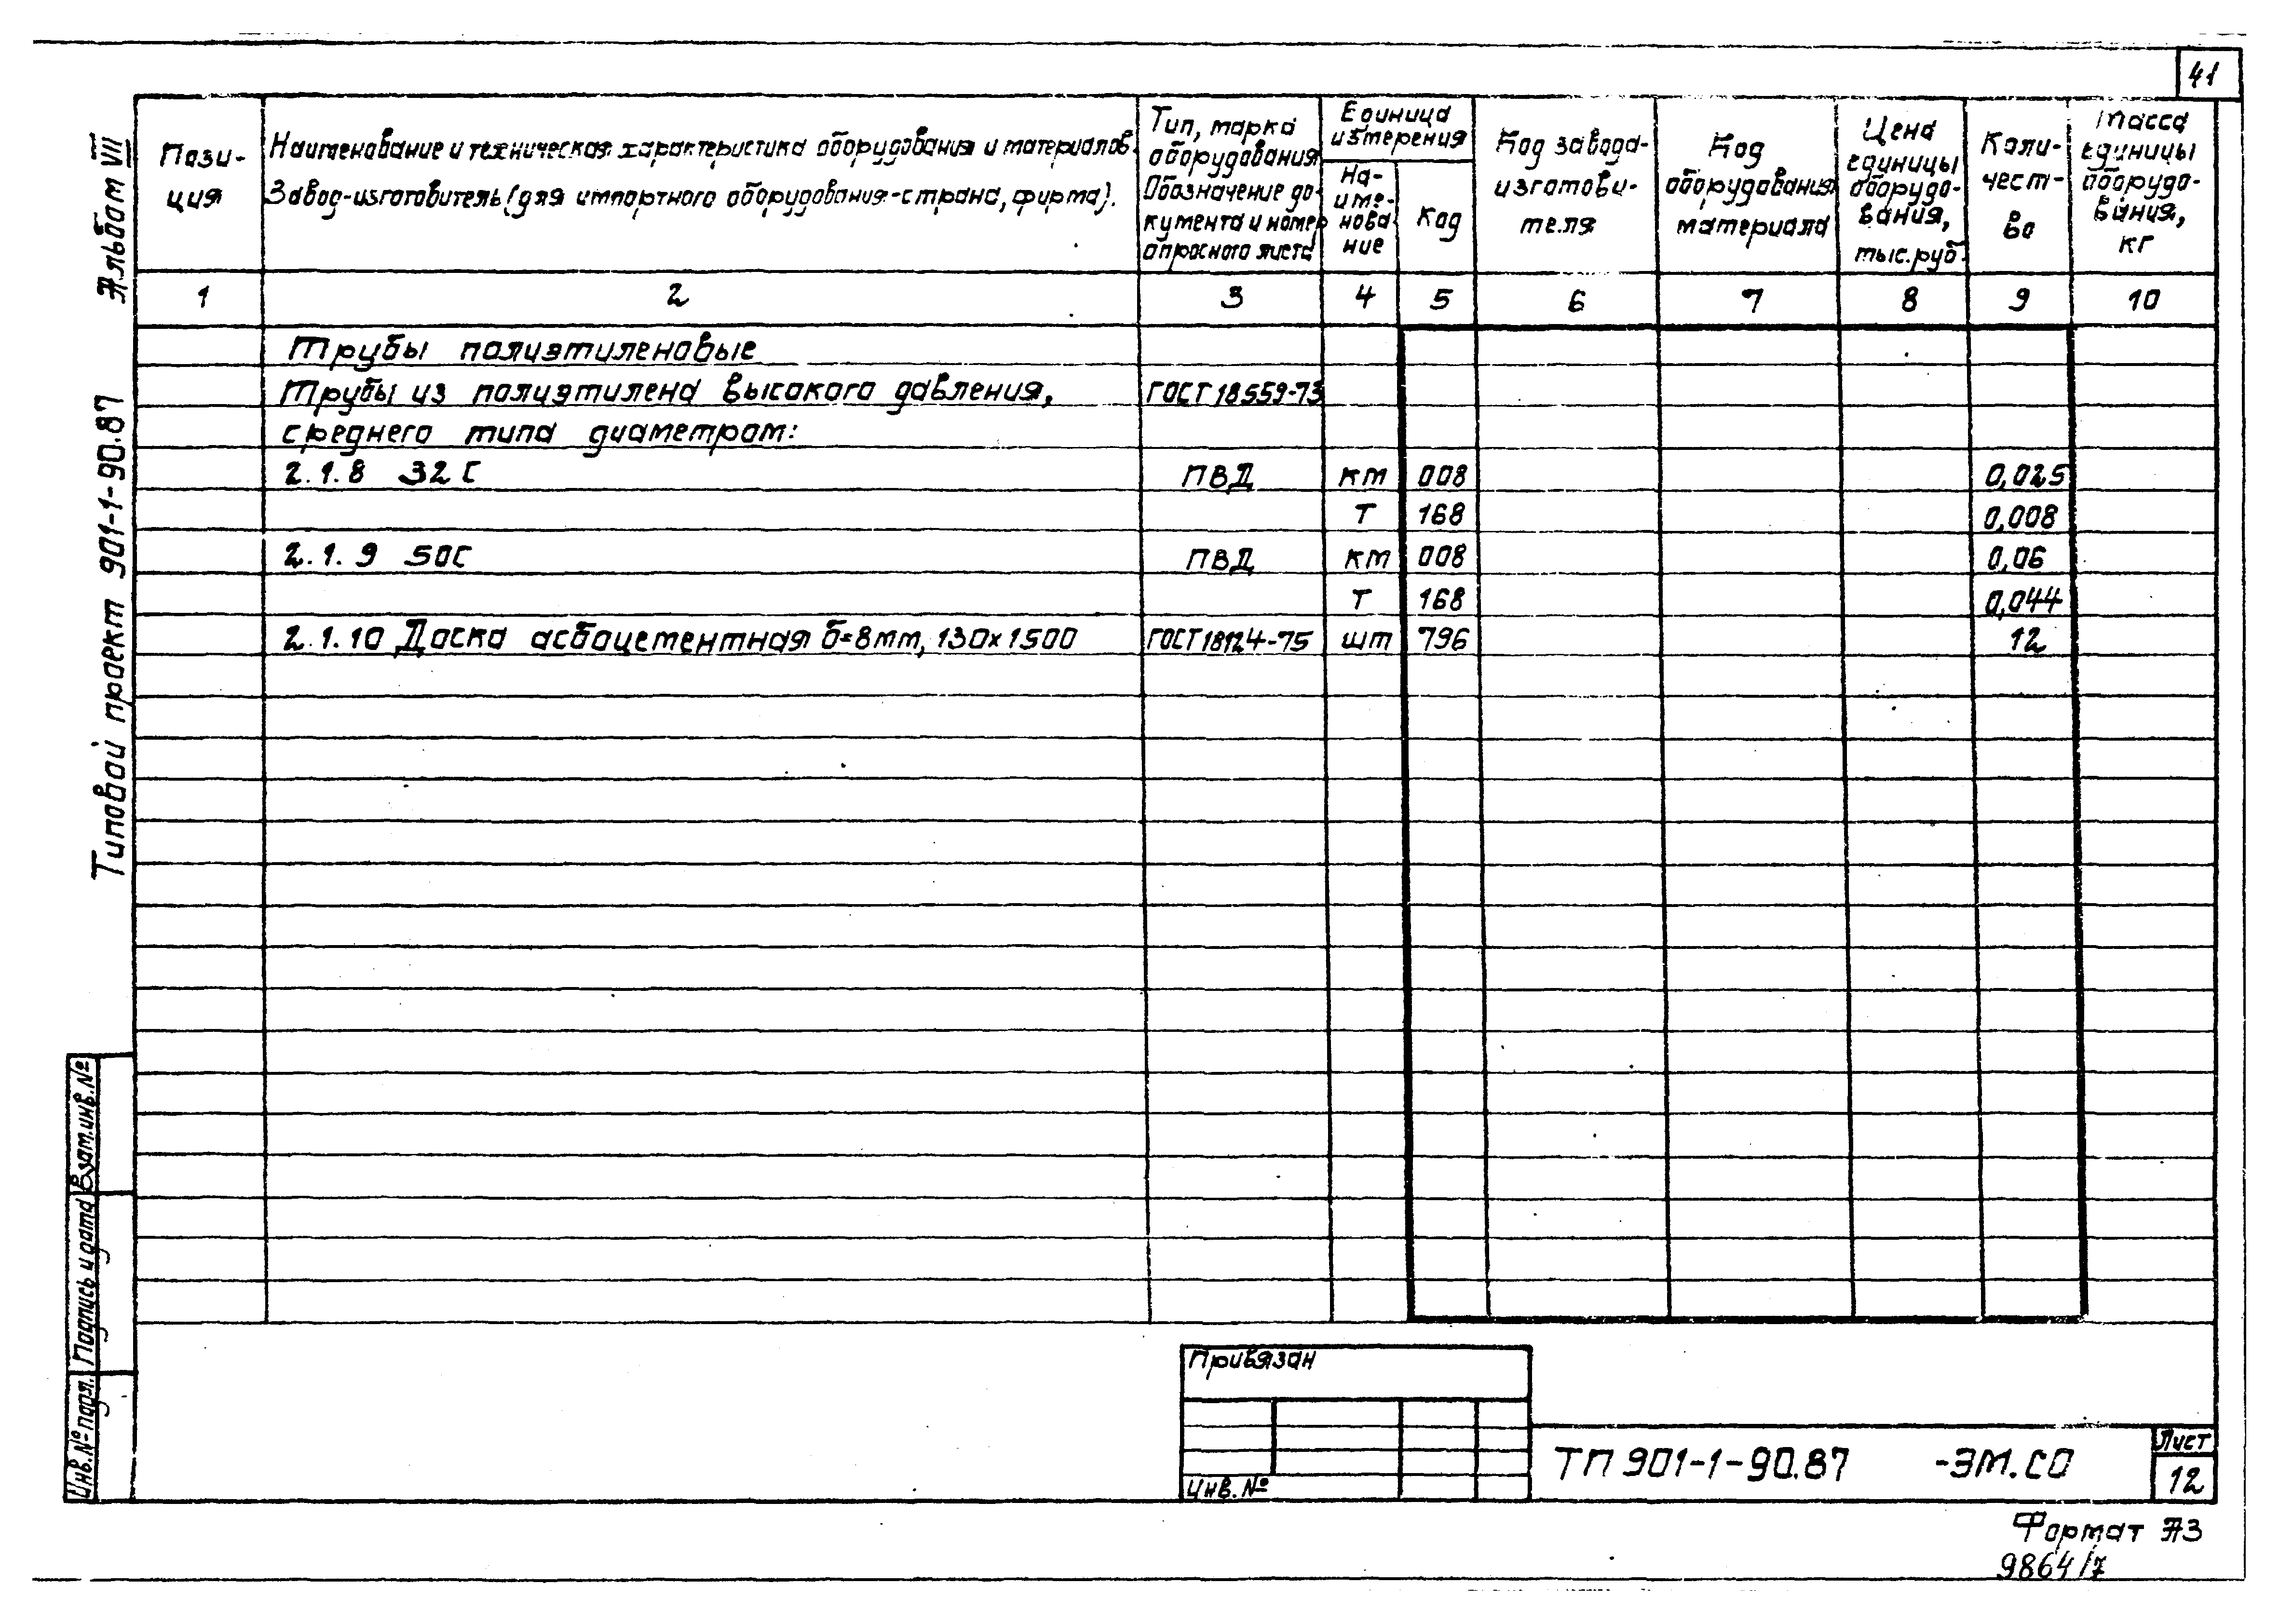 41
Альбом VII
Типовой проект 901-1-90.87
Пози-
ция
Наименование и техническая характеристика оборудования и материалов.
Завод-изготовитель (для импортного оборудования-страна, фирма).
Тип, марка
оборудования.
Обозначение до-
кумента и номер
опросного листа
Единица
измерения
На-
име-
нова-
ние
Код
Код завода-
изготови-
теля
Код
оборудования
материала
Цена
единицы
оборудо-
вания,
тыс.руб.
Коли-
чест-
во
Масса
единицы
оборудо-
вания,
кг
1 2 3 4 5 6 7 8 9 10
Трубы полиэтиленовые
Трубы из полиэтилена высокого давления, ГОСТ 18559-73
среднего типа диаметрам:
2.1.8 32С ПВД км 008 0,025
Т 168 0,008
2.1.9 50С ПВД км 008 0,06
Т 168 0,044
2.1.10 Доска асбоцементная б=8мм, 130х1500 ГОСТ18124-75 шт 796 12
Взам.инв.№
Подпись и дата
Инв.№ подл.
Привязан
Инв. №
ТП 901-1-90.87 -ЭМ.СО
Лист
12
Формат А3
9864/7